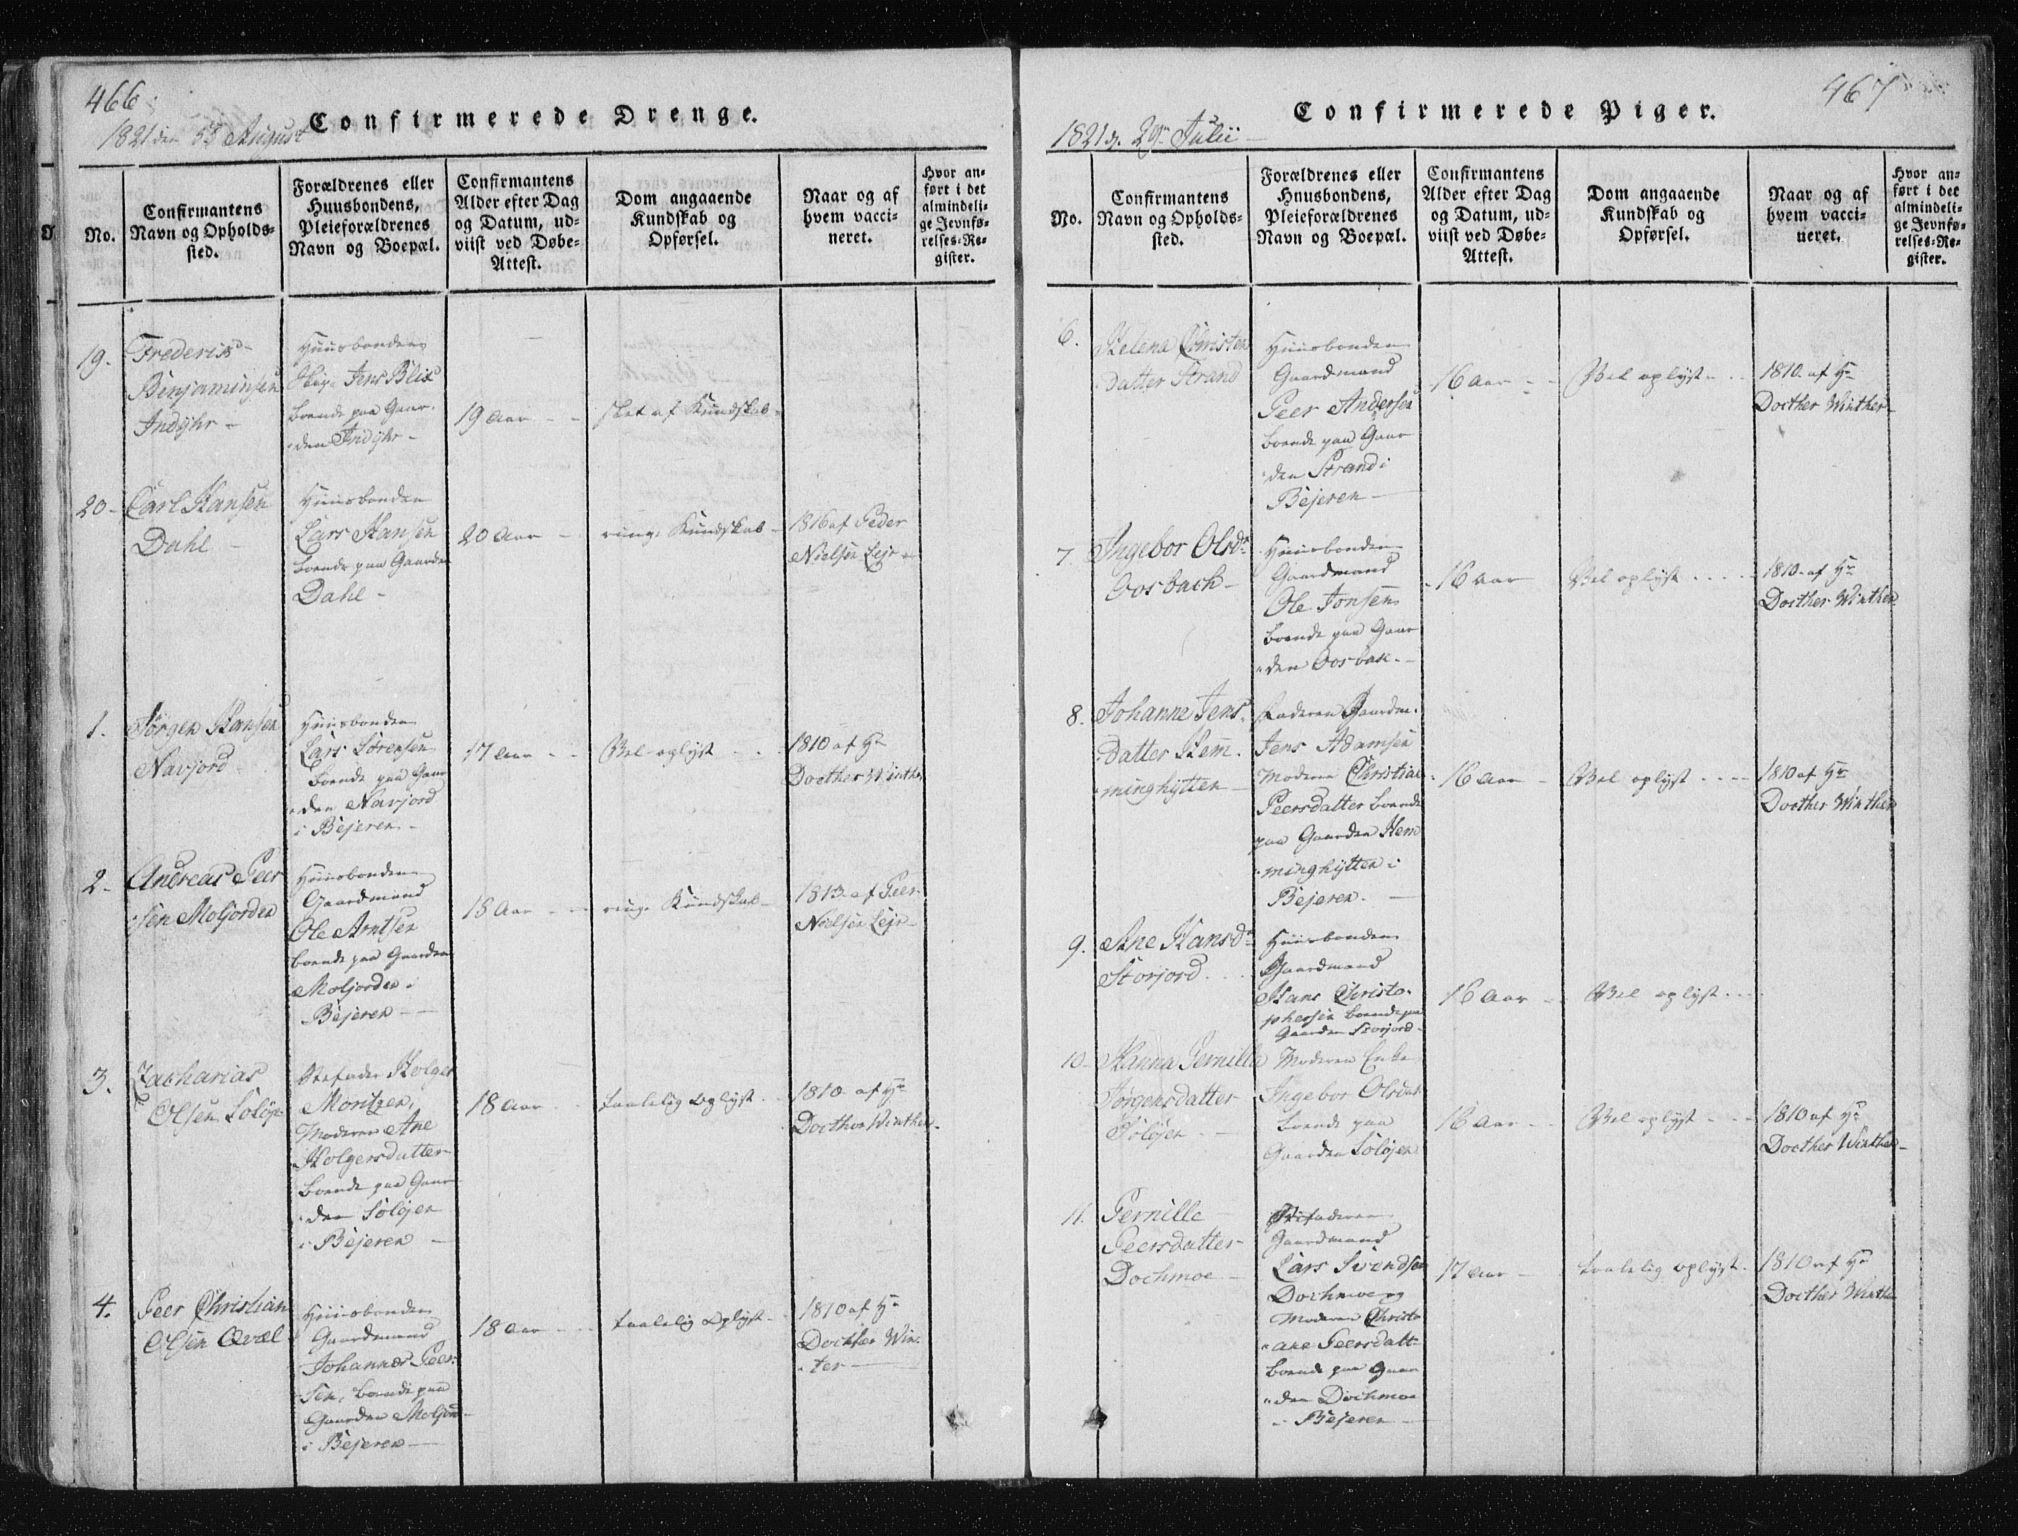 466
Confirmerede Drenge.
1821 den 5t August
No.
Confirmantens
Navn og Opholds-
sted.
Forældrenes eller
Huusbondens,
Pleieforældrenes
Navn og Boepæl.
Confirmantens
Alder efter Dag
og Datum, ud-
viist ved Døbe-
Attest.
Dom angaaende
Kundskab og
Opførsel.
Naar og af
hvem vacci-
neret.
Hvor an-
ført i det
almindeli-
ge Jevnfø-
relses-Re-
gister.
19.
Frederik
Benjaminsen
Indyhr -
Huusbonden
Jens Blix
boende paa Gaar-
den Indyhr -
19 Aar - -
slet af Kundskab -
20 -
Carl Hansen
Dahl -
Huusbonden
Lars Hansen
boende paa Gaarden
Dahl -
20 Aar -
ring. Kundskab -
1816 af Peder
Nielsen Lejr -
1.
Jørgen Hansen
Navjord
Huusbonden
Lars Sørensen
boende paa Gaar-
den Navjord
i Bejeren -
17 Aar - -
Vel oplyst - -
1810 af Hr
Docther Winther
2.
Andreas Peer
sen Moljorden
Huusbonden
Gaardmand
Ole Arntsen
boende paa Gaarden
Moljorden i
Bejeren -
18 Aar - -
ring. Kundskab -
1813 af Peer
Nielsen Lejr -
3.
Zacharias
Olsen Soløj
Stefader Holger
Moritzen,
Moderen Ane
Holgersdatter
boende paa Gaar
den Soløjen
i Bejeren -
18 Aar - -
taalelig oplyst -
1810 af Hr
Docther Winther -
4.
Peer Christian
Olsen Qvæl
Huusbonden
Gaardmand
Johannes Peer-
sen, boende paa
Gaarden Moljord
i Bejeren -
18 Aar - -
taalelig oplyst -
1810 af Hr
Docther Win-
ter -
467
Confirmerede Piger.
1821 d. 29 Julii
No.
Confirmantens
Navn og Opholds-
sted.
Forældrenes eller
Huusbondens,
Pleieforældrenes
Navn og Boepæl.
Confirmantens
Alder efter Dag
og Datum, ud-
viist ved Døbe-
Attest.
Dom angaaende
Kundskab og
Opførsel.
Naar og af
hvem vacci-
neret.
Hvor an-
ført i det
almindeli-
ge Jevnfø-
relses-Re-
gister.
6.
Helena Christen
datter Strand
Huusbonden
Gaardmand
Peer Andersen
boende paa Gaar
den Strand i
Bejeren -
16 Aar - -
Vel oplyst - - -
1810. af Hr
Docther Winther -
7
Ingebor Olsdr
Oosbach -
Huusbonden
Gaardmand
Ole Jonsen
boende paa Gaar
den Oosbak. -
16 Aar
Vel oplyst - - -
1810 - af Hr
Docther Winther
8.
Johanne Jens
datter Hem-
minghytten -
Faderen Gaardm.
Jens Adamsen
Moderen Christiae
Peersdatter boende
paa Gaarden Hem
minghytten i
Bejeren. -
16 Aar -
Vel oplyst - - - -
1810 af Hr
Docther Winther
9.
Ane Hansdr
Storjord. - -
Huusbonden
Gaardmand
Hans Christo-
phersen boende paa
Gaarden Storjord -
16 Aar - -
Vel oplyst - - -
10 -
Hanna Pernilla
Jørgensdatter
Soløjen -
Moderen Enke
Ingebor Olsdat
boende paa
Gaarden Soløjen
16 Aar - -
Vel oplyst - - -
1810 af Hr
Docther Winther -
11.
Pernille
Peersdatter
Dochmoe -
Stifaderen
Gaardmand
Lars Svendsen
Dochmoe og
Moderen Christi
ane Peersdatt-
boende paa Gaar
den Dochmoe
i Bejeren -
17 Aar -
taalelig oplyst -
1810 af Hr
Docther Winther